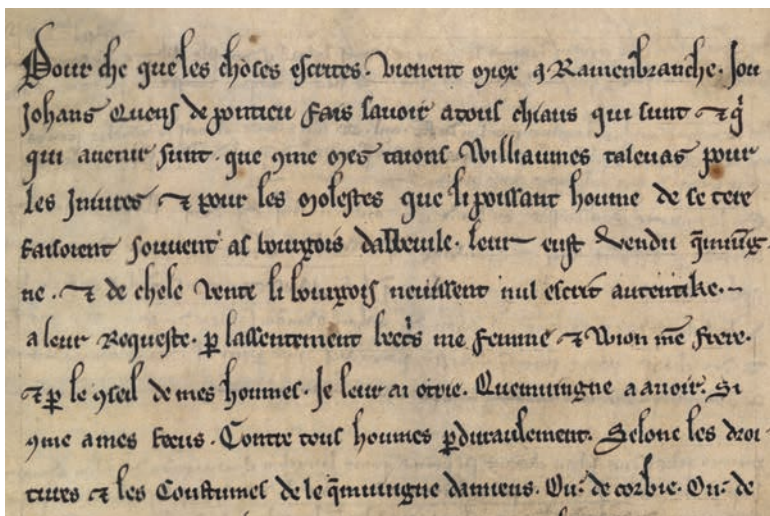 Pour che que les choses escrites. vienent miex a Ramenbranche. Jou
Johans Quens de pontieu fais savoir a tous chiaus qui sunt ⁊ q̇
qui avenir sunt. que ꝯme mes taions Williaumes talevas pour
les Iniures ⁊ pour les molestes que li poissant houme de se tere
faisoient souvent as bourgois dabbevile. leur eust vendu q̄muiḡ
ne. ⁊ de chele vente li bourgois neuissent nul escrit autentike.
a leur Requeste. ꝑ lassentement me femme ⁊ Wion mē frere.
⁊ ꝑ le ꝯseil de mes houmes. Je leur ai otrie. Quemuingne a avoir. Si
ꝯme a mes foeus. Contre tous houmes ꝑduraulement. Selonc les droi
tures ⁊ les Coustumes de le q̄muingne damiens. Ou. de corbie. Ou. de